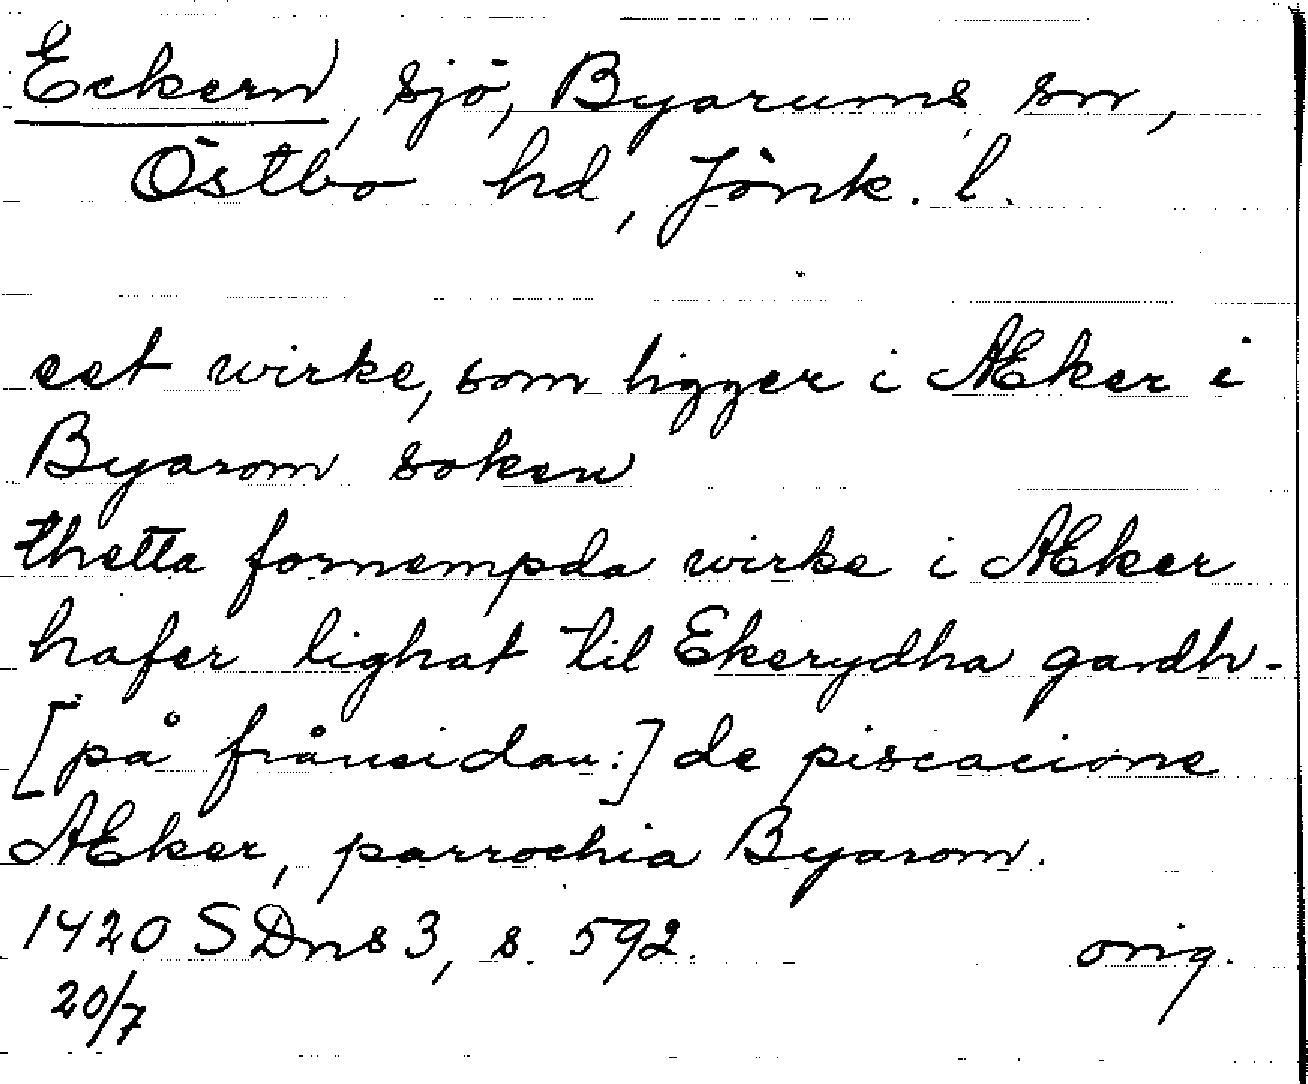 Eckern, sjö, Byarums sn,
Östbo hd, Jönk. l.
eet wirke, som ligger i Æker i
Byarom soken
thetta fornempda wirke i Æker
hafer lighat til Ekerydha gardh-
[på frånsidan:] de piscacione
Æker, parrochia Byarom.
1420 SDns 3, s. 592. orig.
20/7